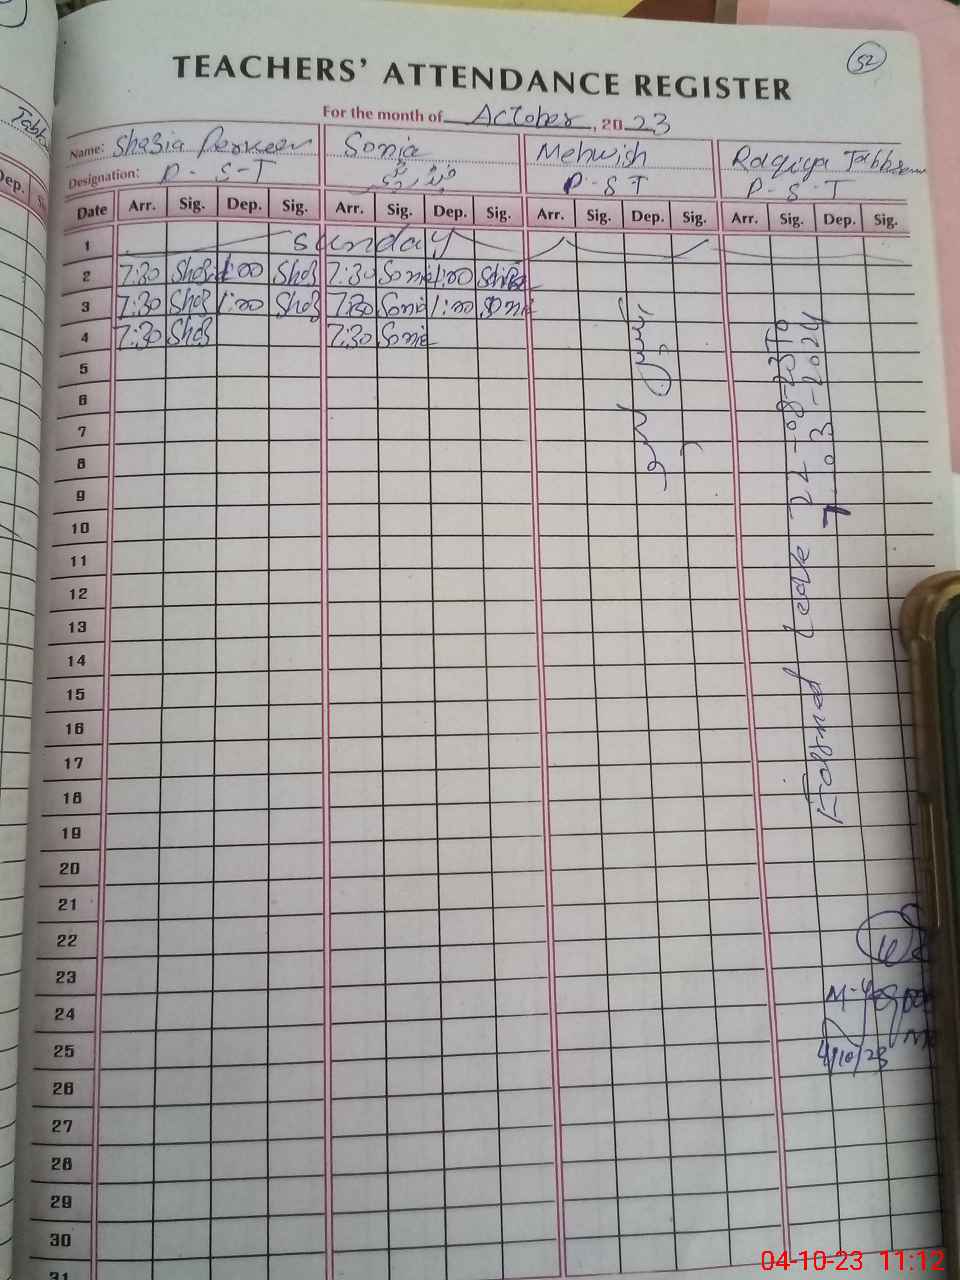 52
TEACHERS' ATTENDANCE REGISTER
For the month of Actober, 2023
Name: Shazia Perveen Sonia Mehwish Raqiya Tabbsem
Designation: P-S-T P-S-T P-S-T
Date Arr. Sig. Dep. Sig. Arr. Sig. Dep. Sig. Arr. Sig. Dep. Sig. Arr. Sig. Dep. Sig.
1 Sunday
2 7:30 Shaz 1:00 Shaz 7:30 Sonia 1:00
3 7:30 Shaz 1:00 Shaz 7:30 Sonia 1:00 Sonia
4 7:30 Shaz 7:30 Sonia
5
6
7
8
9
10
11
12
13
14
15
16
17
18
19
20
21
22
23
24
25
26
27
28
29
30
31
Earned Leave 22-08-23 To
7-03-2024
4/10/23
04-10-23 11:12